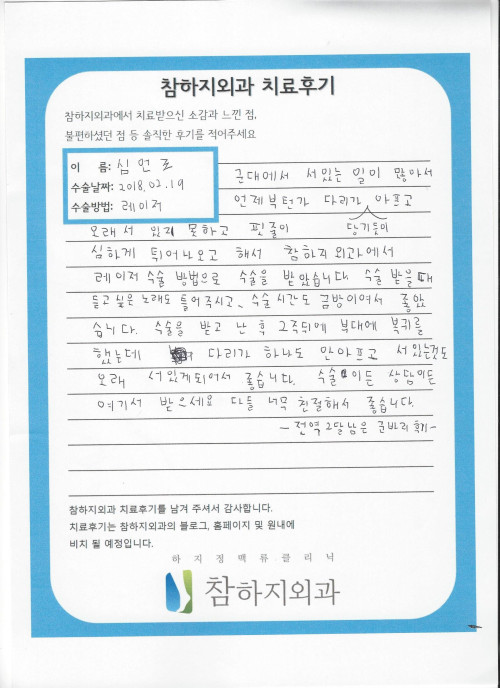 참하지외과 치료후기
참하지외과에서 치료받으신 소감과 느낀 점,
불편하셨던 점 등 솔직한 후기를 적어주세요
이 름: 심언로
수술날짜: 2018.02.19
수술방법: 레이저
군대에서 서있는 일이 많아서
언제부턴가 다리가 아프고
오래서 있지 못하고 핏줄이 당기듯이
심하게 튀어나오고 해서 참하지외과에서
레이저 수술 방법으로 수술을 받았습니다 수술 받을때
듣고싶은 노래도 틀어주시고, 수술시간도 금방이여서 좋았
습니다. 수술을 받고 난 후 2주뒤에 부대에 복귀를
했는데 다리가 하나도 안아프고 서있는것도
오래 서있게되어서 좋습니다. 수술이든 상담이든
여기서 받으세요 다들 너무 친절해서 좋습니다.
-전역 2달남은 군바리 후기-
참하지외과 치료후기를 남겨 주셔서 감사합니다.
치료후기는 참하지외과의 블로그, 홈페이지 및 원내에
비치 될 예정입니다.
하지정맥류클리닉
참하지외과